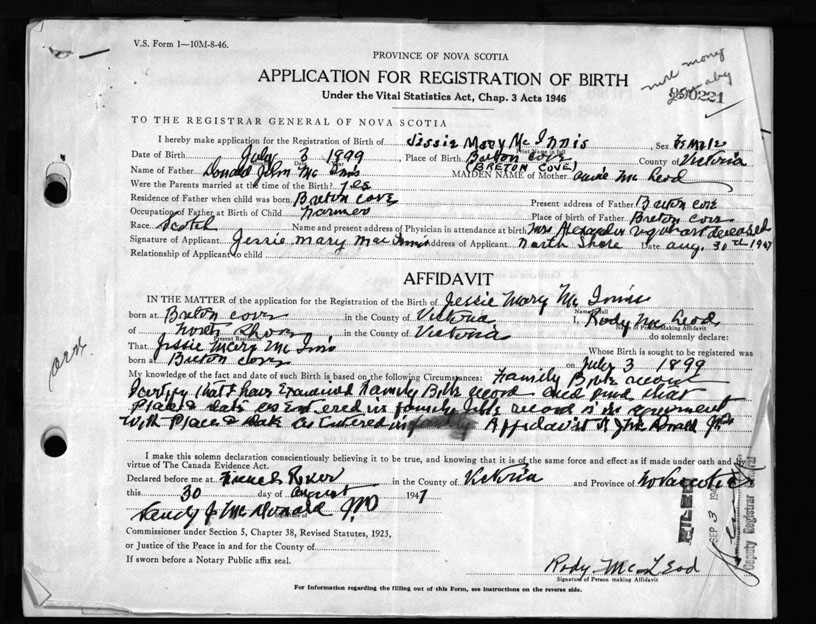 V.S. Form 1—10M-8-46.
PROVINCE OF NOVA SCOTIA
APPLICATION FOR REGISTRATION OF BIRTH
Under the Vital Statistics Act, Chap. 3 Acts 1946
990221
TO THE REGISTRAR GENERAL OF NOVA SCOTIA
I hereby make application for the Registration of Birth of Jessie Mary Mc Innis Sex Female
Print Name in full
Date of Birth July 3 1899, Place of Birth Breton cove County of Victoria
(BRETON COVE)
Name of Father Donald John Mc Innis MAIDEN NAME of Mother Annie Mc Leod
Were the Parents married at the time of the Birth? yes
Residence of Father when child was born Breton cove Present address of Father Breton cove
Occupation of Father at Birth of Child Farmer Place of birth of Father Breton cove
Race Scotch Name and present address of Physician in attendance at birth Mrs Alexander Urquhart deceased
Signature of Applicant Jessie Mary Mac Innis Address of Applicant North Shore Date Aug. 30th 1947
Relationship of Applicant to child
AFFIDAVIT
IN THE MATTER of the application for the Registration of the Birth of Jessie Mary Mc Innis
Name in full
born at Breton cove in the County of Victoria I, Rody Mc Leod
Name of Person Making Affidavit
of North Shore in the County of Victoria do solemnly declare:
Present Residence
That Jessie Mary Mc Innis Whose Birth is sought to be registered was
born at Breton cove on July 3 1899
My knowledge of the fact and date of such Birth is based on the following Circumstances: Family Bible record
I certify that I have Examined Family Bible record and find that
Place & date as Entered in family bible record is in agreement
with Place & date as Entered in Affidavit S J McDonald JP
I make this solemn declaration conscientiously believing it to be true, and knowing that it is of the same force and effect as if made under oath and by
virtue of The Canada Evidence Act.
Declared before me at French River in the County of Victoria and Province of Nova Scotia
this 30 day of August 1947
Sandy J McDonald JP
Commissioner under Section 5, Chapter 38, Revised Statutes, 1923,
or Justice of the Peace in and for the County of
If sworn before a Notary Public affix seal.
Rody McLeod
Signature of Person making Affidavit
SEP 3
Deputy Registrar
For Information regarding the filling out of this Form, see instructions on the reverse side.